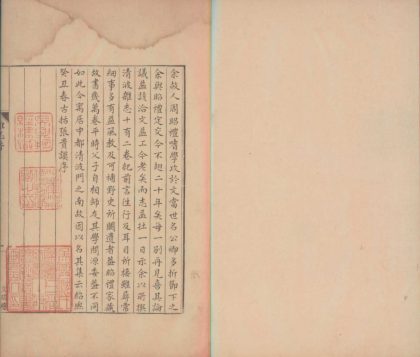 余故人周昭禮嗜學攻於文當世名公卿多折節下之
余與昭禮定交今不翅二十年矣每一別再見喜其論
議益該洽文益工今老矣而志益壯一日示余以所撰
清波雜志十有二卷紀前言往行及耳目所接雖尋常
細事多有益風教及可補野史所闕遺者蓋昭禮家藏
故書幾萬卷平時父子自相師友其學問源委蓋不同
如此今寓居中都清波門之南故因以名其集云紹興
癸丑春古括張貴謨序